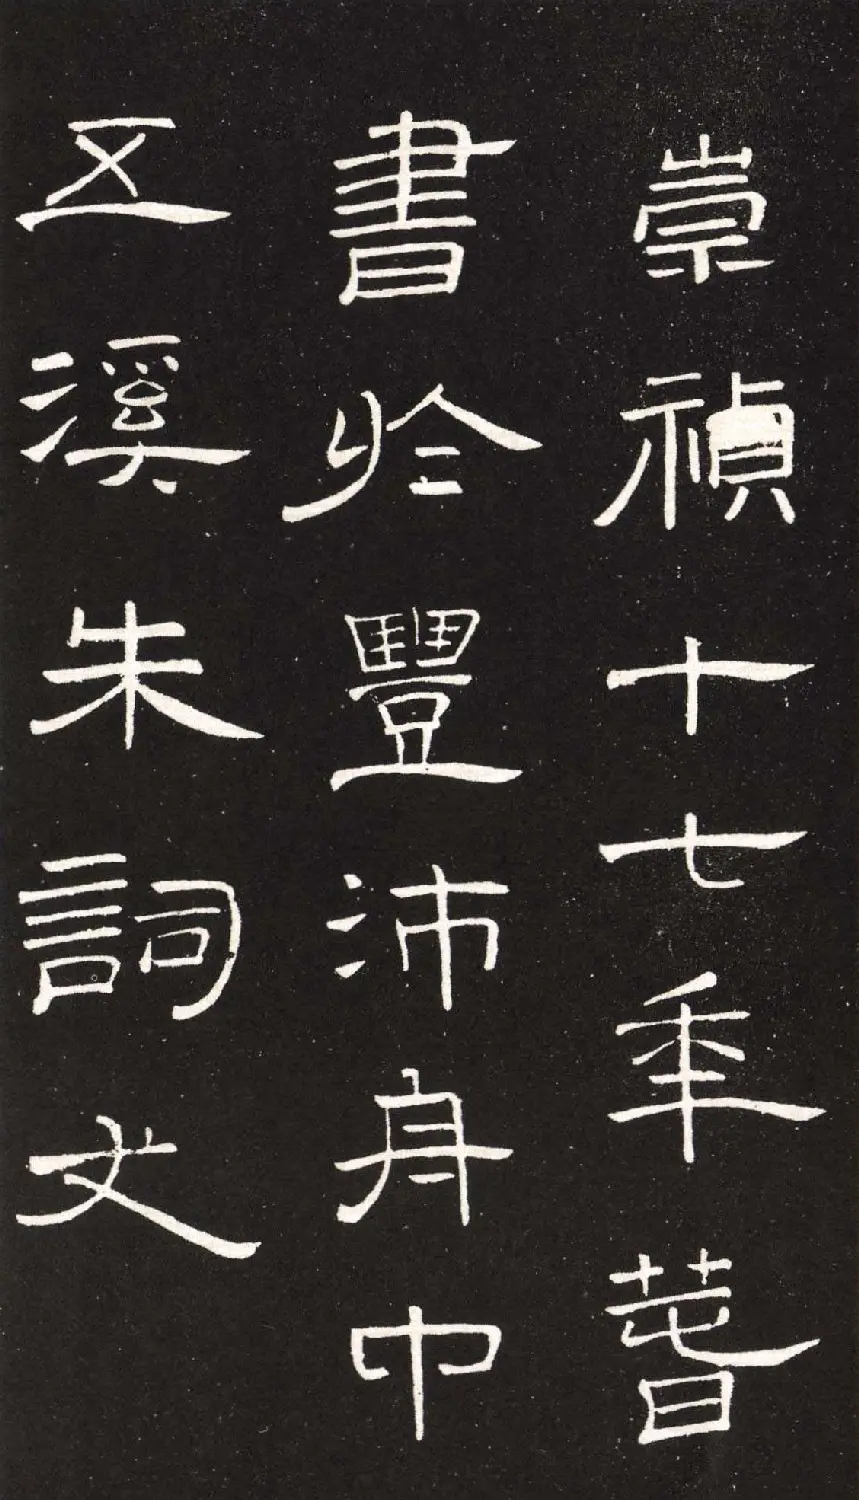 崇禎十七年萅
書於豐沛舟中
五溪朱詞丈